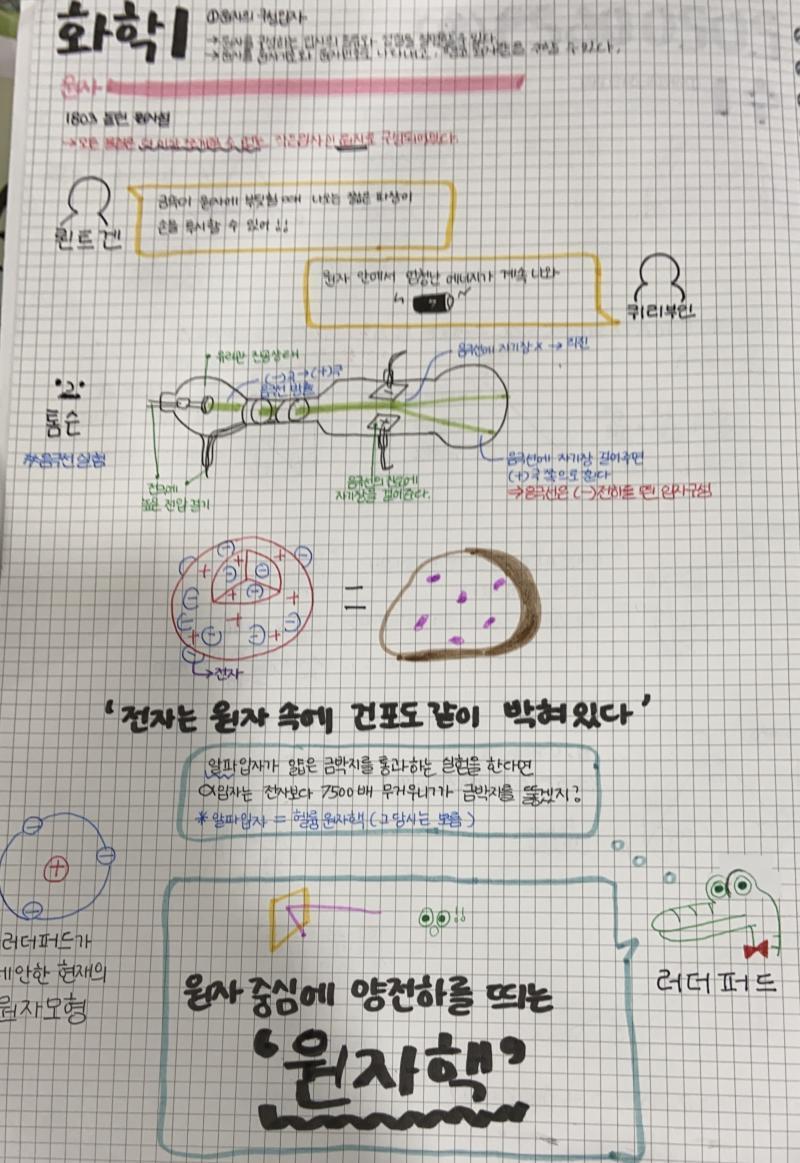 화학1
①원자의 구성입자
원자
1803 돌턴 원자설
→모든 물질은 더 이상 쪼개질 수 없는 작은입자인 원자로 구성되어있다.
금속이 원자에 부딪힐 때 나오는 짧은 파장이
손을 투시할 수 있어!!
뢴트겐
원자 안에서 엄청난 에너지가 계속 나와
?
퀴리부인
유리관 진공상태
(-)극→(+)극
음극선 방출
음극선에 자기장 X → 직진
"2"
톰슨
*음극선 실험
전극에
높은 전압 걸기
음극선의 진로에
자기장을 걸어준다.
음극선에 자기장 걸어주면
(+)극 쪽으로 휜다
⇒음극선은 (-)전하를 띤 입자구성
=
→전자
'전자는 원자 속에 건포도같이 박혀있다'
알파입자가 얇은 금박지를 통과하는 실험을 한다면
α입자는 전자보다 7500배 무거우니까 금박지를 뚫겠지?
*알파입자 = 헬륨원자핵 (그 당시는 모름)
러더퍼드가
제안한 현재의
원자모형
!!
러더퍼드
원자 중심에 양전하를 띄는
'원자핵'